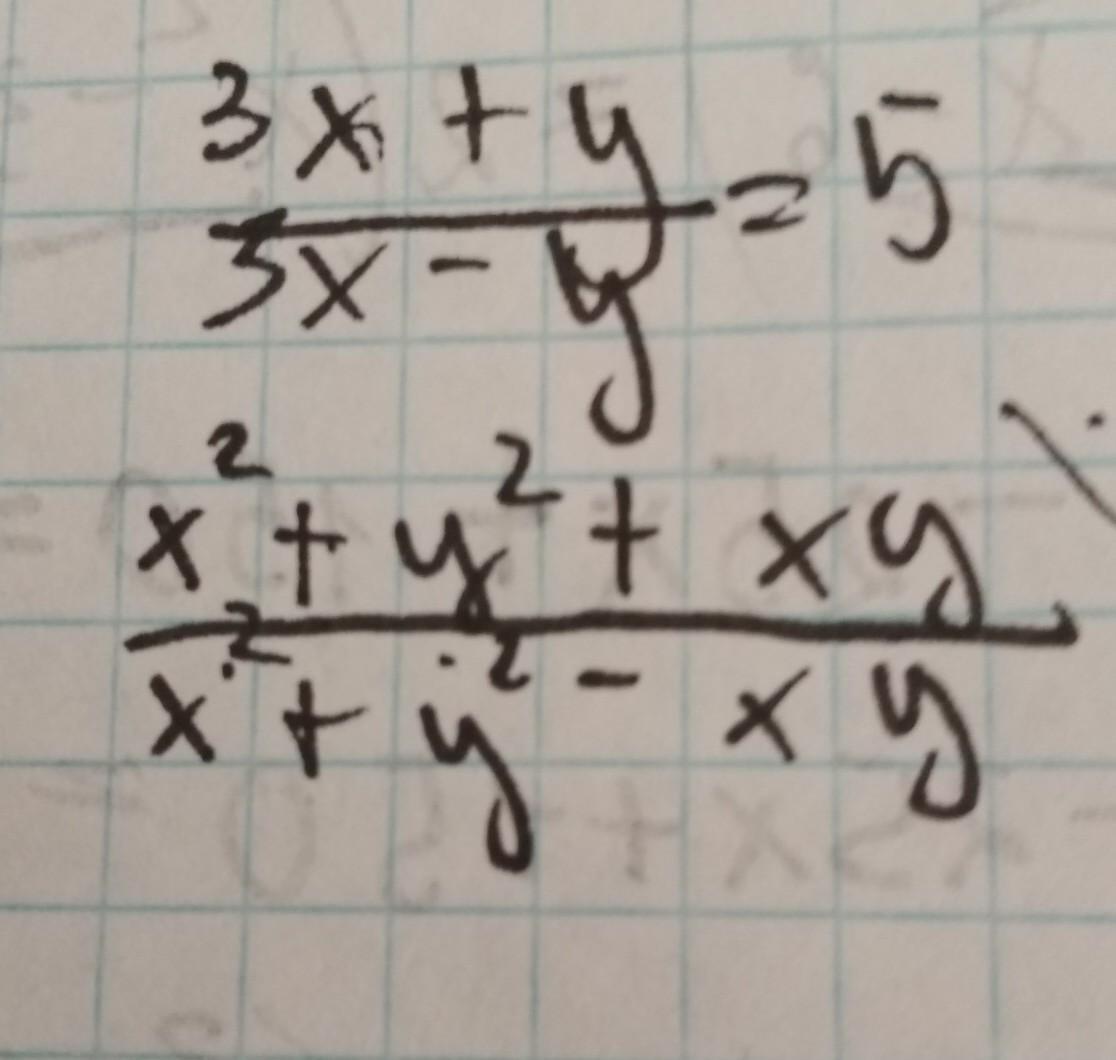 3x + y
3x - y = 5
x² + y² + xy
x² + y² - xy